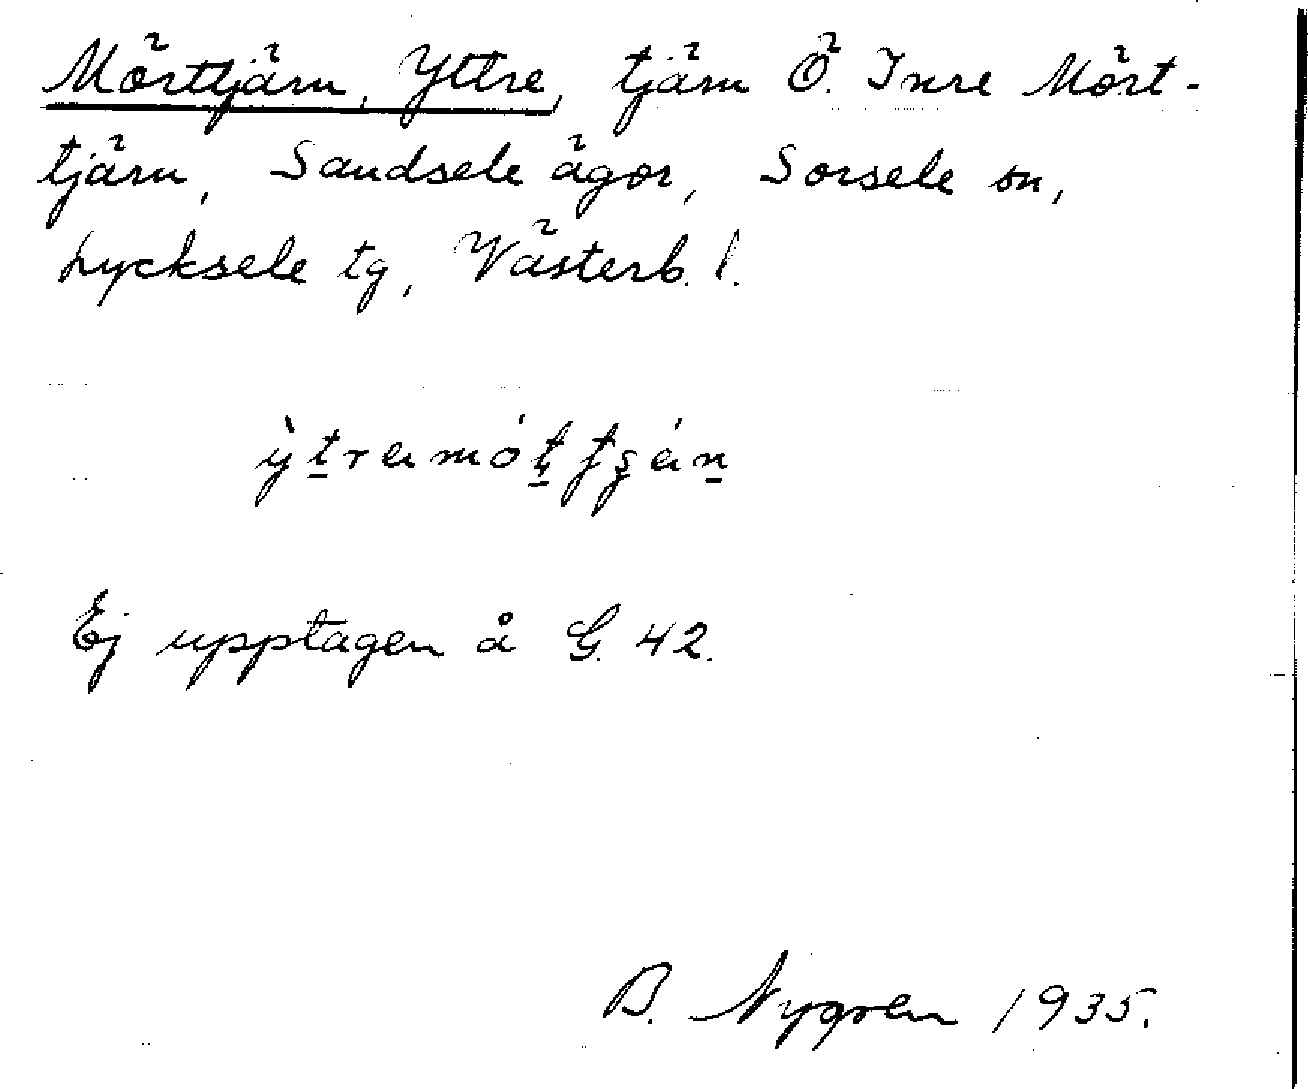 Mörttjärn, Yttre, tjärn Ö. Inre Mört-
tjärn, Sandsele ägor, Sorsele sn,
Lycksele tg, Västerb. l.
Ej upptagen å G. 42.
B. Nygren 1935.